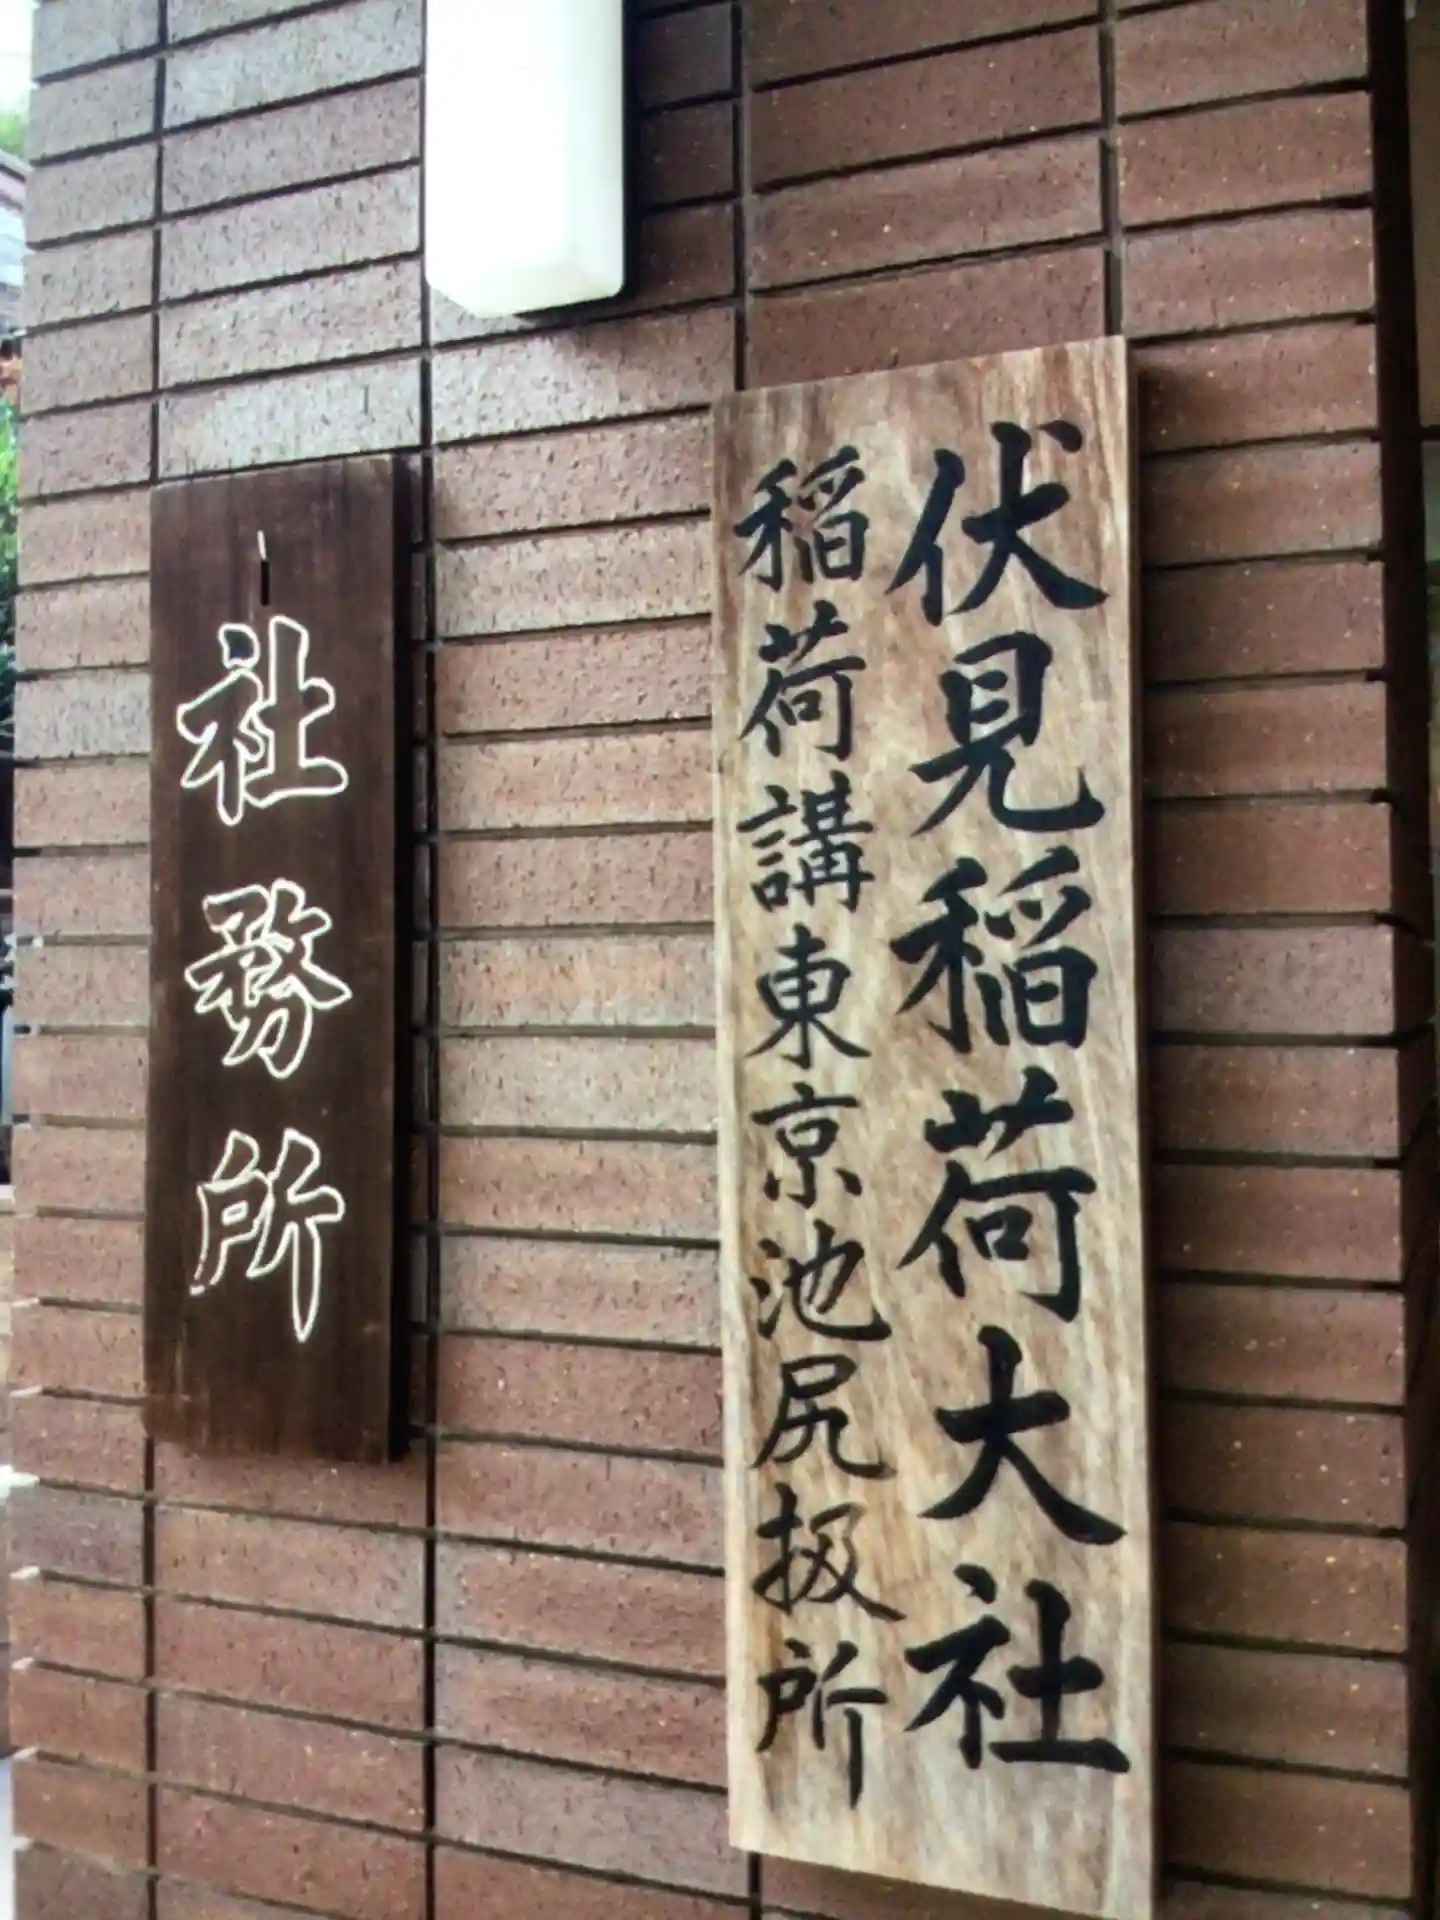 伏見稲荷大社
稲荷講東京池尻扱所
社務所